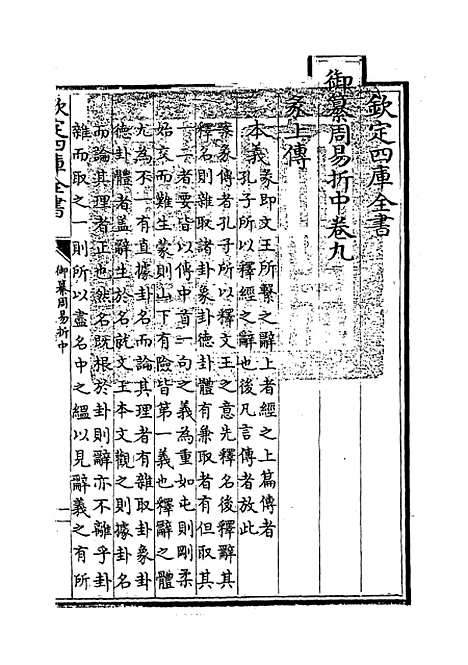 欽定四庫全書
御纂周易折中卷九
彖上傳
本義
彖即文王所繫之辭上者經之上篇傳者
孔子所以釋經之辭也後凡言傳者放此
彖傳者孔子所以釋文王之意先釋名後釋辭其
釋名則雜取諸卦象卦德卦體有兼取者有但取其
一二者要皆以傳中首一句之義為重如屯則剛柔
始交而難生蒙則山下有險皆第一義也釋辭之體
尤為不一有直據卦名而論其理者有雜取卦象卦
德卦體者蓋辭生於名就文王本文觀之則據卦名
而論其理者正也然名既根於卦則辭亦不離乎卦
雜而取之一則所以盡名中之縕以見辭義之有所
欽定四庫全書
御纂周易折中
一